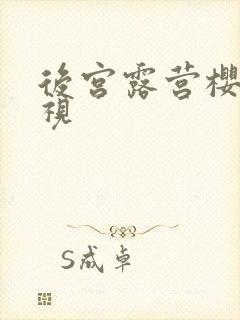 後宮露营櫻
視
S成卓